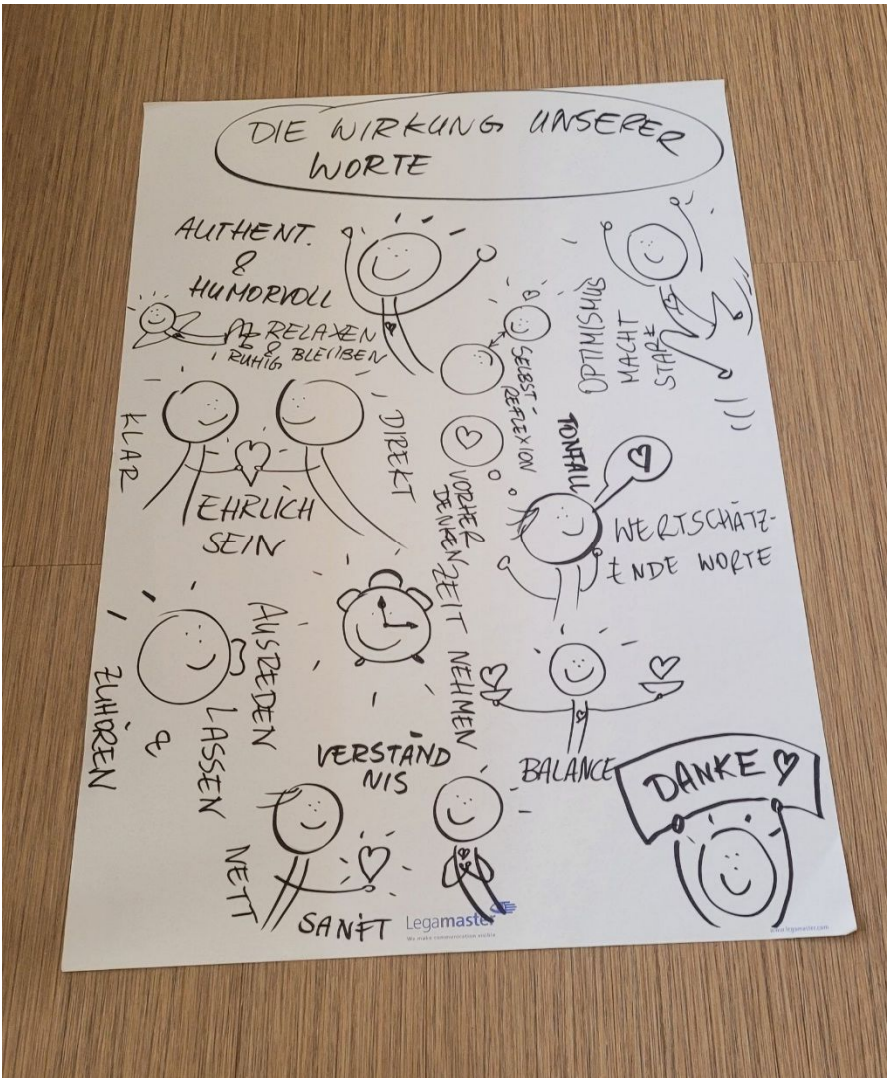 DIE WIRKUNG UNSERER
WORTE
AUTHENT.
&
HUMORVOLL
RELAXEN
& RUHIG BLEIBEN
OPTIMISMUS
MACHT
STARK
SELBST-
REFLEXION
KLAR
DIREKT
EHRLICH
SEIN
VORHER
DENKEN
TONFALL
WERTSCHÄTZ-
ENDE WORTE
ZEIT NEHMEN
ZUHÖREN
&
AUSREDEN
LASSEN
VERSTÄND
NIS
BALANCE
DANKE
NETT
SANFT
Legamaster
We make communication visible
www.legamaster.com